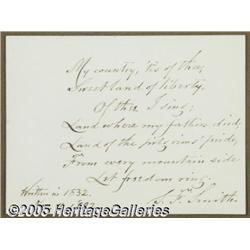 My country, 'tis of thee,
Sweet land of liberty,
Of thee I sing;
Land where my fathers died,
Land of the pilgrims' pride,
From every mountain side
Let freedom ring.
Written in 1832.
S. F. Smith
©2005 HeritageGalleries